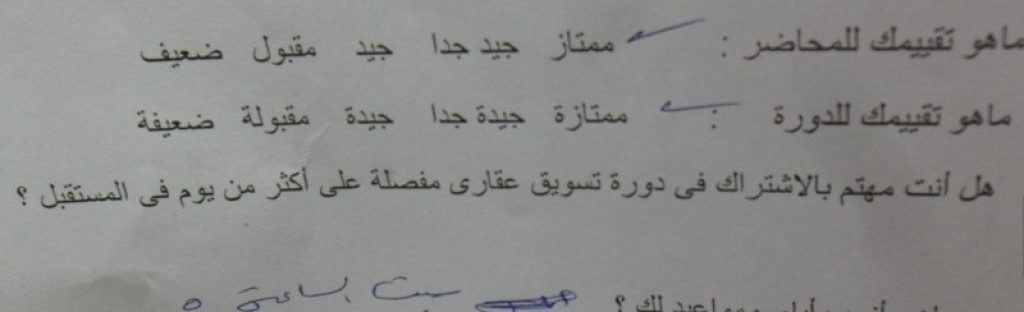 ماهو تقييمك للمحاضر : ممتاز جيد جدا جيد مقبول ضعيف
ماهو تقييمك للدورة : ممتازة جيدة جدا جيدة مقبولة ضعيفة
هل أنت مهتم بالاشتراك فى دورة تسويق عقارى مفصلة على أكثر من يوم فى المستقبل ؟
لك ؟ سبت الساعة 5